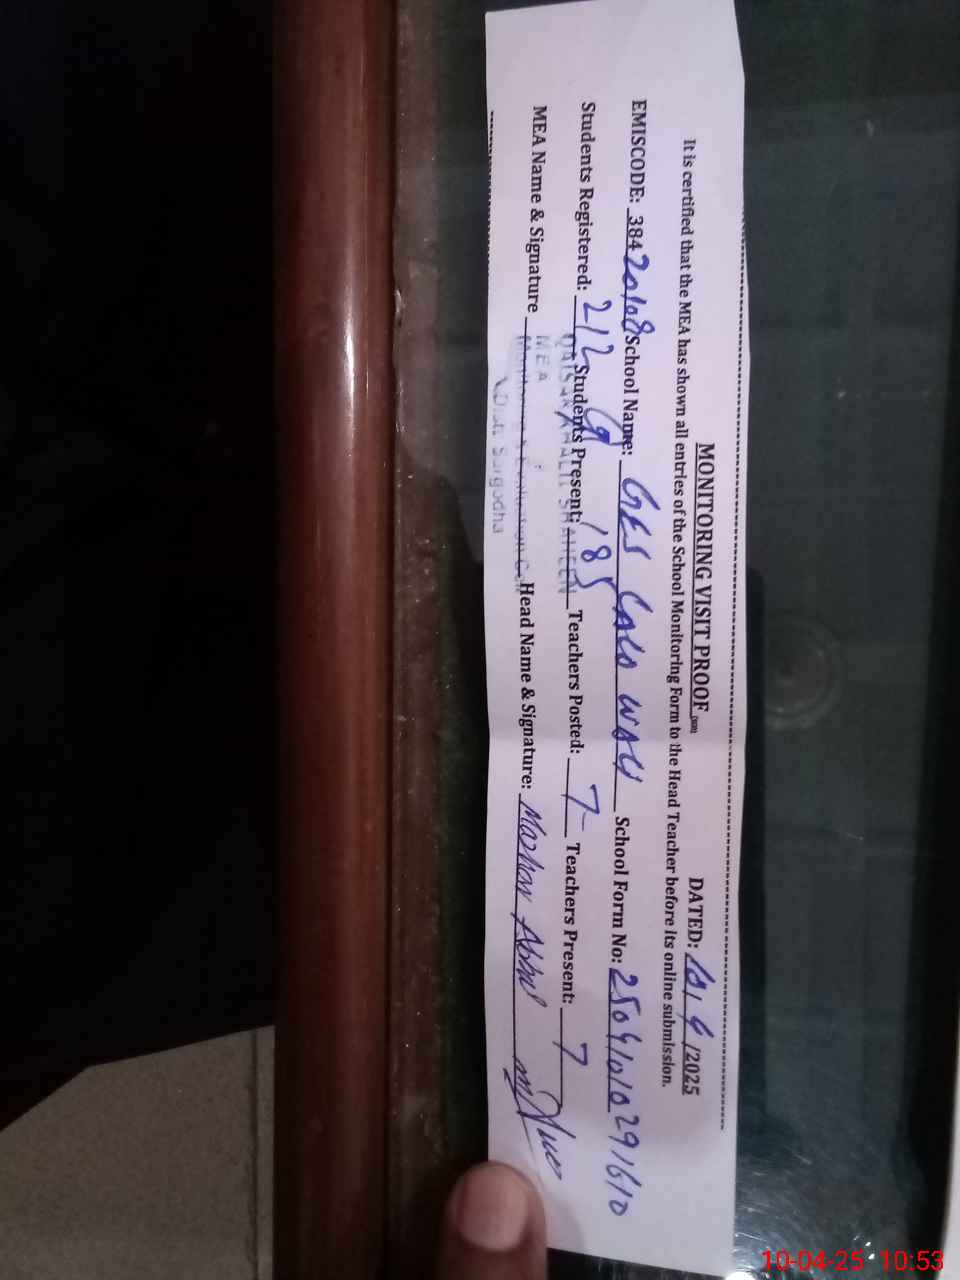 MONITORING VISIT PROOF DATED: 10, 4 /2025
It is certified that the MEA has shown all entries of the School Monitoring Form to the Head Teacher before its online submission.
EMISCODE: 38420108 School Name: GES School Form No:
Students Registered: 212 Students Present: 185 Teachers Posted: 7 Teachers Present: 7
MEA Name & Signature Head Name & Signature:
SHAHEEN
MEA
Monitoring & Evaluation Cell
Distt. Sargodha
10-04-25 10:53